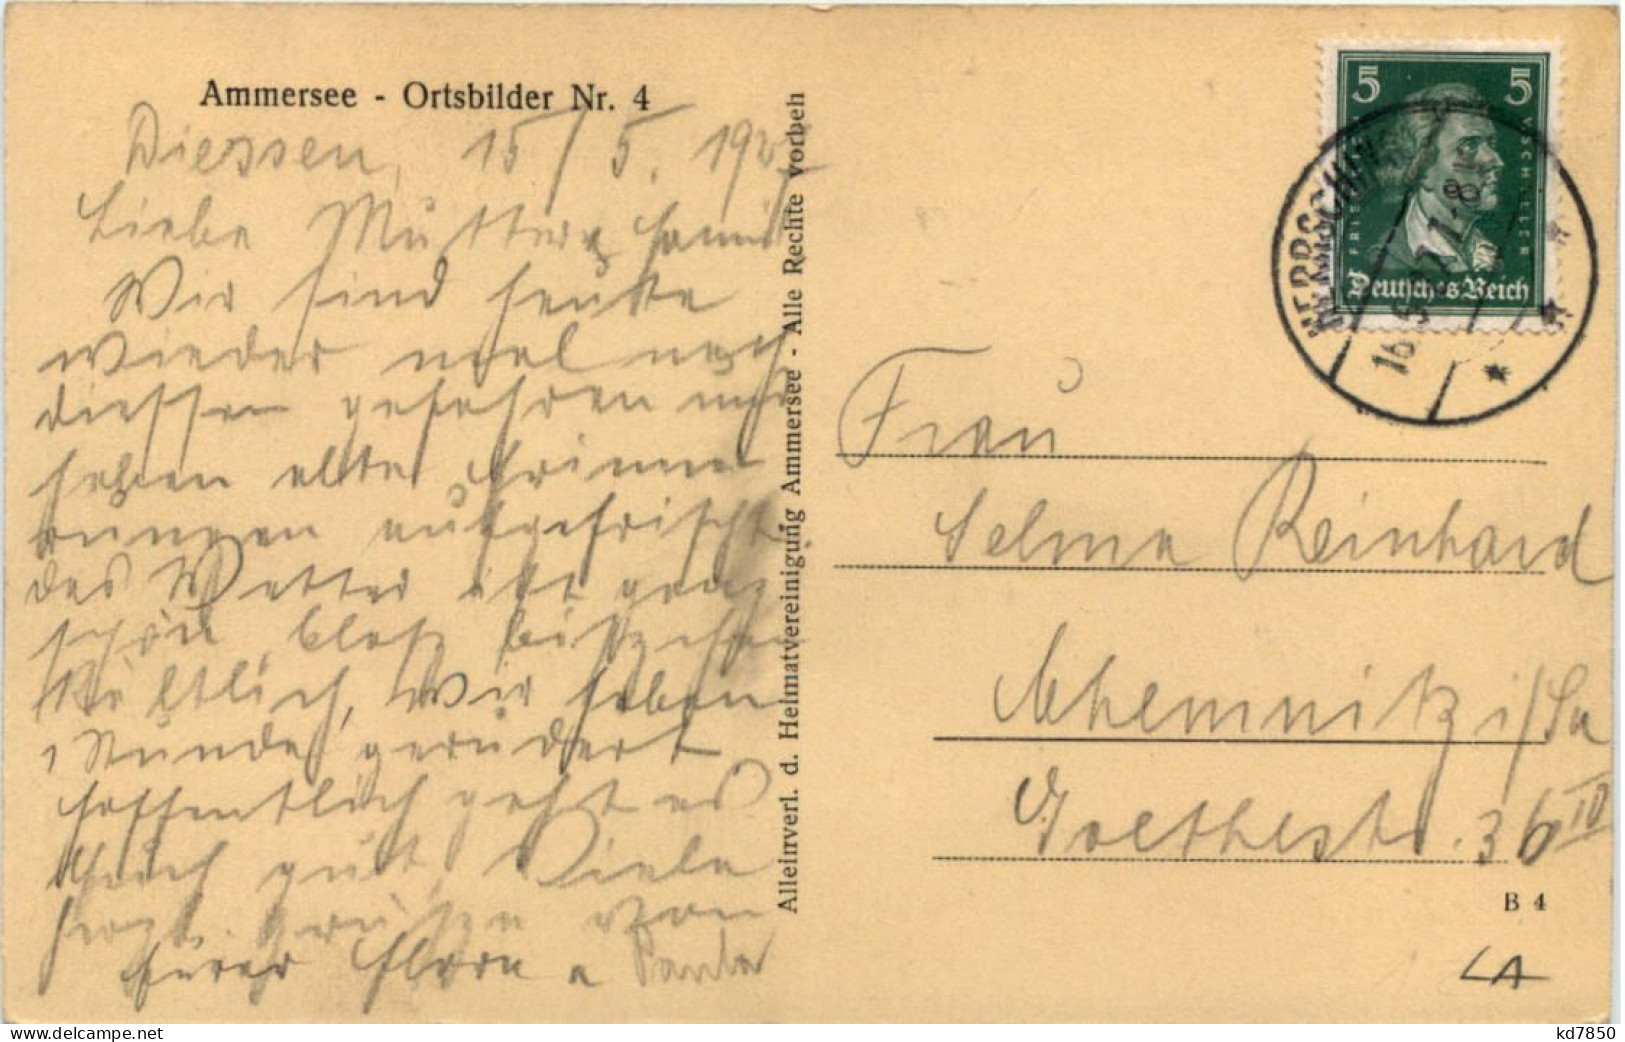 Ammersee - Ortsbilder Nr. 4
Diessen, 15/5. 1927
Liebe Mutter u Famil
Wir sind heute
wieder mal nach
diessen gefahren und
haben alte Erinne
rungen aufgefrischt
das Wetter ist ganz
schön, blos bißchen
Kältlich, wir haben
1 Stunde gerudert
hoffentlich geht es
Euch gut. Viele
herzl. Grüße von
Eurer Flora u
Alleinverl. d. Heimatvereinigung Ammersee - Alle Rechte vorbeh
5 5
FRIEDR. V. SCHILLER
Deutsches Reich
HERRSCHING
16. 5. 27. 7-8 V.
Frau
Selma Reinhard
Chemnitz i/Sa
Goethestr. 36 III
B 4
LA
www.delcampe.net
kd7850